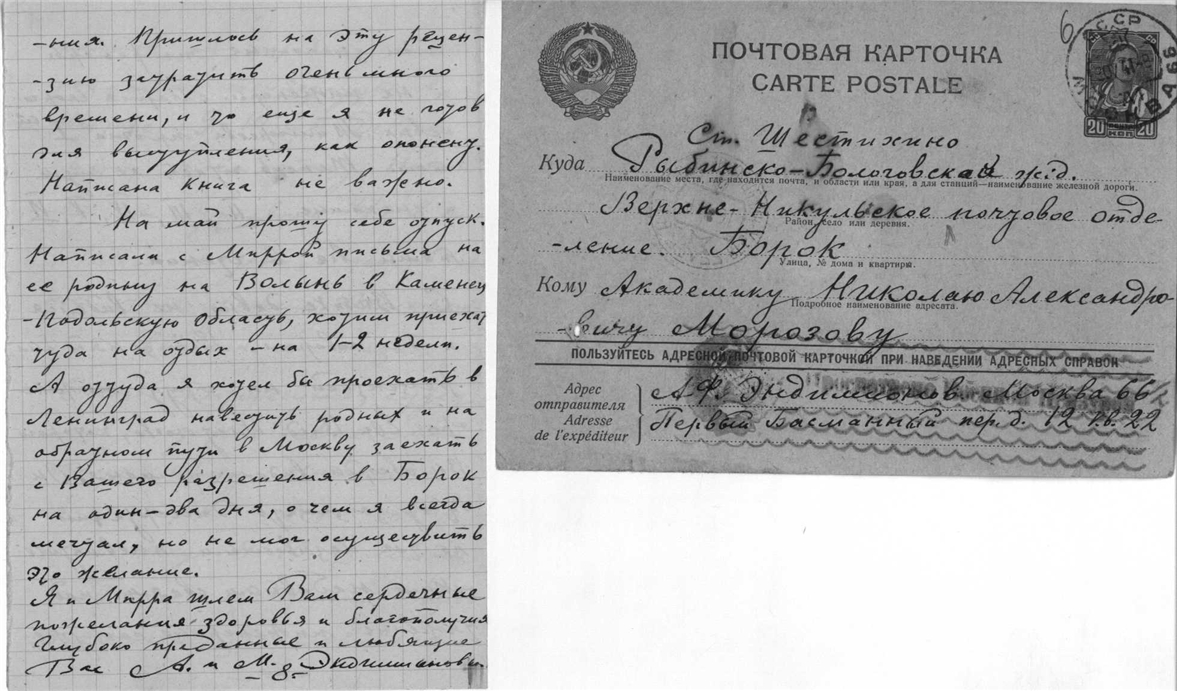 -ния. Пришлось на эту рецен-
-зию затратить очень много
времени, и что еще я не готов
для выступления, как оппонент.
Написана книга не важно.
На май прошу себе отпуск.
Написали с Миррой письма на
ее родину на Волынь в Каменец
-Подольскую область, хотим приехать
туда на отдых – на 1–2 недели.
А оттуда я хотел бы проехать в
Ленинград навестить родных и на
обратном пути в Москву заехать
с Вашего разрешения в Борок
на один-два дня, о чем я всегда
мечтал, но не мог осуществить
это желание.
Я и Мирра шлем Вам сердечные
пожелания здоровья и благополучия
Глубоко преданные и любящие
Вас А. и М. Эндимионовы.
ПОЧТОВАЯ КАРТОЧКА
CARTE POSTALE
СССР
МОСКВА 66
20 КОП 20
6
Ст. Шестихино
Куда Рыбинско-Бологовская ж.д.
Наименование места, где находится почта, и области или края, а для станций—наименование железной дороги.
Верхне-Никульское почтовое отде-
Район, село или деревня.
-ление. Борок
Улица, № дома и квартиры.
Кому Академику Николаю Александро-
Подробное наименование адресата.
-вичу Морозову
ПОЛЬЗУЙТЕСЬ АДРЕСНОЙ ПОЧТОВОЙ КАРТОЧКОЙ ПРИ НАВЕДЕНИИ АДРЕСНЫХ СПРАВОК
Адрес отправителя
Adresse de l'expéditeur
А.Ф. Эндимионов Москва 66
Первый Басманный пер. д. 12 кв. 22